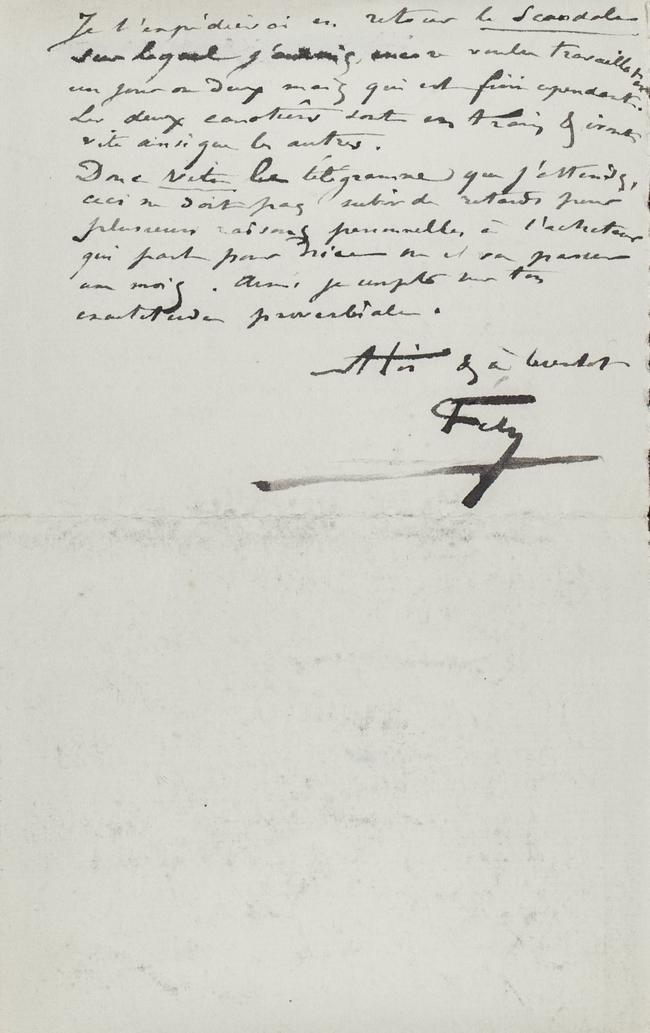 Je t'expédierai en retour le Scandale
sur lequel j'aurais encore voulu travailler
un jour ou deux mais qui est fini cependant.
Les deux canotiers sont en train & iront
vite ainsi que les autres.
Donc vite le télégramme que j'attends,
ceci ne doit pas subir de retards pour
plusieurs raisons personnelles à l'acheteur
qui part pour Nice où il va passer
un mois. Ainsi je compte sur ton
exactitude proverbiale.
A toi & à bientôt
Fély